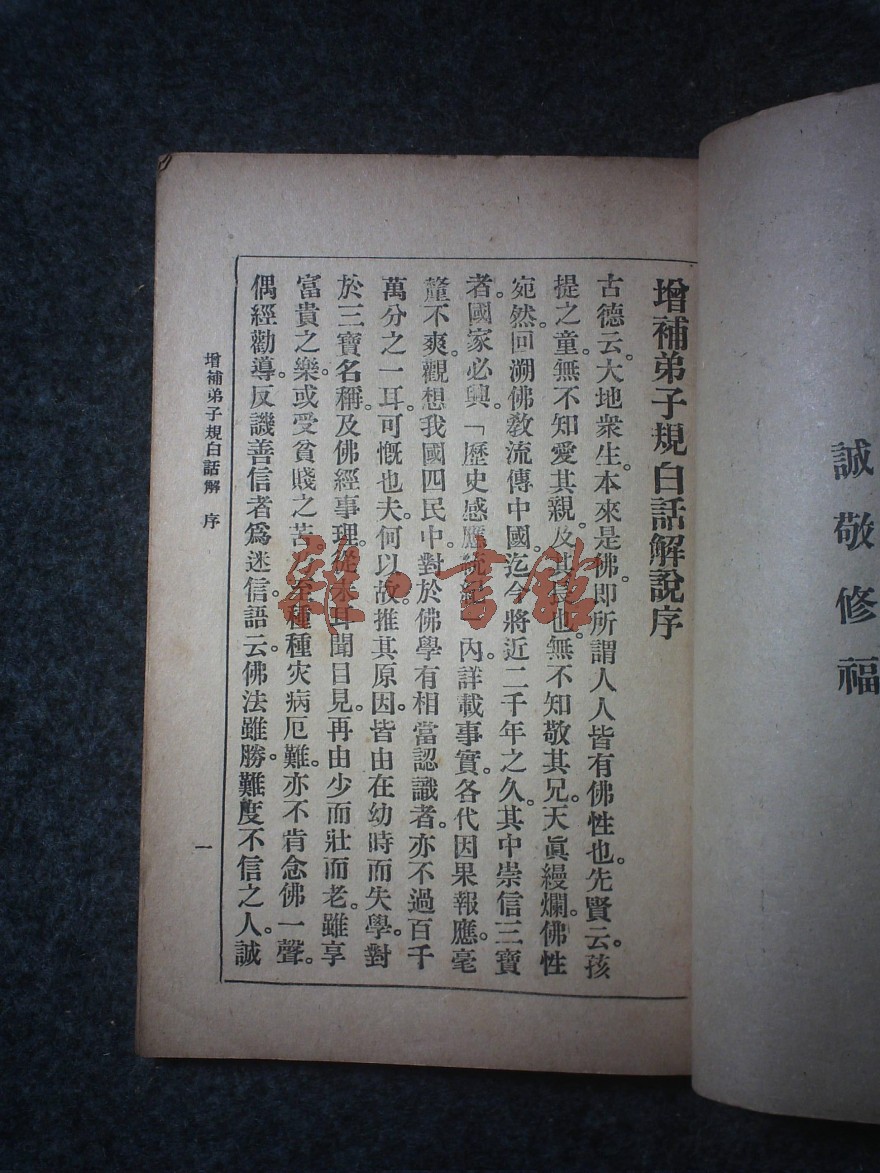 誠敬修福
增補弟子規白話解說序
古德云。大地衆生。本來是佛。卽所謂人人皆有佛性也。先賢云。孩
提之童。無不知愛其親。及其長也。無不知敬其兄。天眞縵爛。佛性
宛然。回溯佛敎流傳中國。迄今將近二千年之久。其中崇信三寶
者。國家必興。「歷史感應統紀」內。詳載事實。各代因果報應。毫
釐不爽。觀想我國四民中。對於佛學有相當認識者。亦不過百千
萬分之一耳。可慨也夫。何以故。推其原因。皆由在幼時而失學。對
於三寶名稱。及佛經事理。從未耳聞目見。再由少而壯而老。雖享
富貴之樂。或受貧賤之苦。以至種種灾病厄難。亦不肯念佛一聲。
偶經勸導。反譏善信者爲迷信。語云。佛法雖勝。難度不信之人。誠
增補弟子規白話解 序
一
雜·書館